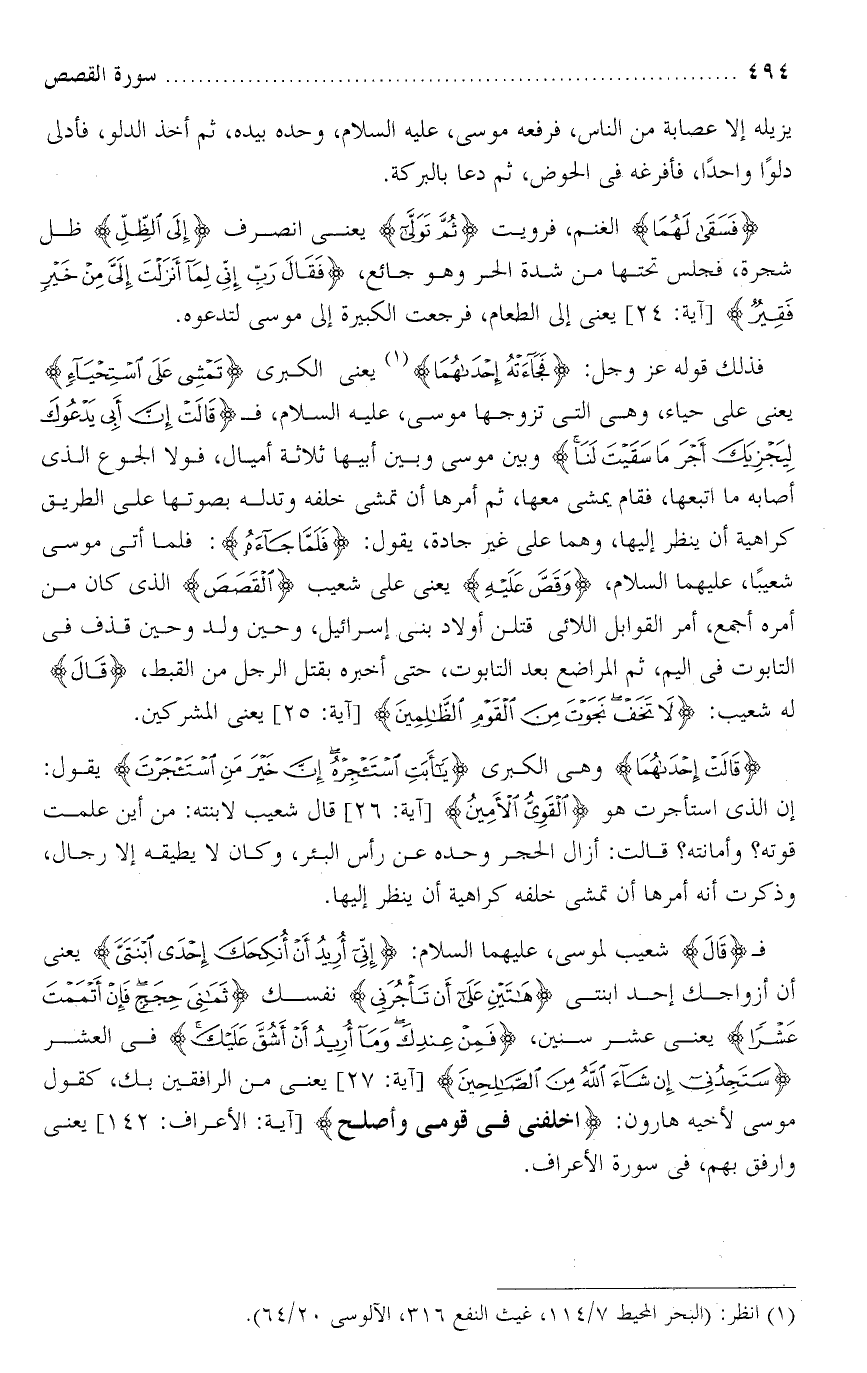 ٤٩٤ ........................................................................ سورة القصص
يزيله إلا عصابة من الناس، فرفعه موسى، عليه السلام، وحده بيده، ثم أخذ الدلو، فأدلى
دلوًا واحدًا، فأفرغه فى الحوض، ثم دعا بالبركة.
﴿فَسَقَىٰ لَهُمَا﴾ الغنم، فرويت ﴿ثُمَّ تَوَلَّىٰٓ﴾ يعنى انصرف ﴿إِلَى ٱلظِّلِّ﴾ ظل
شجرة، فجلس تحتها من شدة الحر وهو جائع، ﴿فَقَالَ رَبِّ إِنِّى لِمَآ أَنزَلْتَ إِلَىَّ مِنْ خَيْرٍ
فَقِيرٌ﴾ [آية: ٢٤] يعنى إلى الطعام، فرجعت الكبيرة إلى موسى لتدعوه.
فذلك قوله عز وجل: ﴿فَجَآءَتْهُ إِحْدَىٰهُمَا﴾(١) يعنى الكبرى ﴿تَمْشِى عَلَى ٱسْتِحْيَآءٍ﴾
يعنى على حياء، وهى التى تزوجها موسى، عليه السلام، فـ﴿قَالَتْ إِنَّ أَبِى يَدْعُوكَ
لِيَجْزِيَكَ أَجْرَ مَا سَقَيْتَ لَنَا ۚ﴾ وبين موسى وبين أبيها ثلاثة أميال، فولا الجوع الذى
أصابه ما اتبعها، فقام يمشى معها، ثم أمرها أن تمشى خلفه وتدله بصوتها على الطريق
كراهية أن ينظر إليها، وهما على غير جادة، يقول: ﴿فَلَمَّا جَآءَهُۥ﴾: فلما أتى موسى
شعيبًا، عليهما السلام، ﴿وَقَصَّ عَلَيْهِ﴾ يعنى على شعيب ﴿ٱلْقَصَصَ﴾ الذى كان من
أمره أجمع، أمر القوابل اللائى قتلن أولاد بنى إسرائيل، وحين ولد وحين قذف فى
التابوت فى اليم، ثم المراضع بعد التابوت، حتى أخبره بقتل الرجل من القبط، ﴿قَالَ﴾
له شعيب: ﴿لَا تَخَفْ ۖ نَجَوْتَ مِنَ ٱلْقَوْمِ ٱلظَّٰلِمِينَ﴾ [آية: ٢٥] يعنى المشركين.
﴿قَالَتْ إِحْدَىٰهُمَا﴾ وهى الكبرى ﴿يَٰٓأَبَتِ ٱسْتَـْٔجِرْهُ ۖ إِنَّ خَيْرَ مَنِ ٱسْتَـْٔجَرْتَ﴾ يقول:
إن الذى استأجرت هو ﴿ٱلْقَوِىُّ ٱلْأَمِينُ﴾ [آية: ٢٦] قال شعيب لابنته: من أين علمت
قوته؟ وأمانته؟ قالت: أزال الحجر وحده عن رأس البئر، وكان لا يطيقه إلا رجال،
وذكرت أنه أمرها أن تمشى خلفه كراهية أن ينظر إليها.
فـ﴿قَالَ﴾ شعيب لموسى، عليهما السلام: ﴿إِنِّىٓ أُرِيدُ أَنْ أُنكِحَكَ إِحْدَى ٱبْنَتَىَّ﴾ يعنى
أن أزواجك إحد ابنتى ﴿هَٰتَيْنِ عَلَىٰٓ أَن تَأْجُرَنِى﴾ نفسك ﴿ثَمَٰنِىَ حِجَجٍ ۖ فَإِنْ أَتْمَمْتَ
عَشْرًا﴾ يعنى عشر سنين، ﴿فَمِنْ عِندِكَ ۖ وَمَآ أُرِيدُ أَنْ أَشُقَّ عَلَيْكَ ۚ﴾ فى العشر
﴿سَتَجِدُنِىٓ إِن شَآءَ ٱللَّهُ مِنَ ٱلصَّٰلِحِينَ﴾ [آية: ٢٧] يعنى من الرافقين بك، كقول
موسى لأخيه هارون: ﴿اخلفنى فى قومى وأصلح﴾ [آية: الأعراف: ١٤٢] يعنى
وارفق بهم، فى سورة الأعراف.
(١) انظر: (البحر المحيط ١١٤/٧، غيث النفع ٣١٦، الآلوسى ٦٤/٢٠).